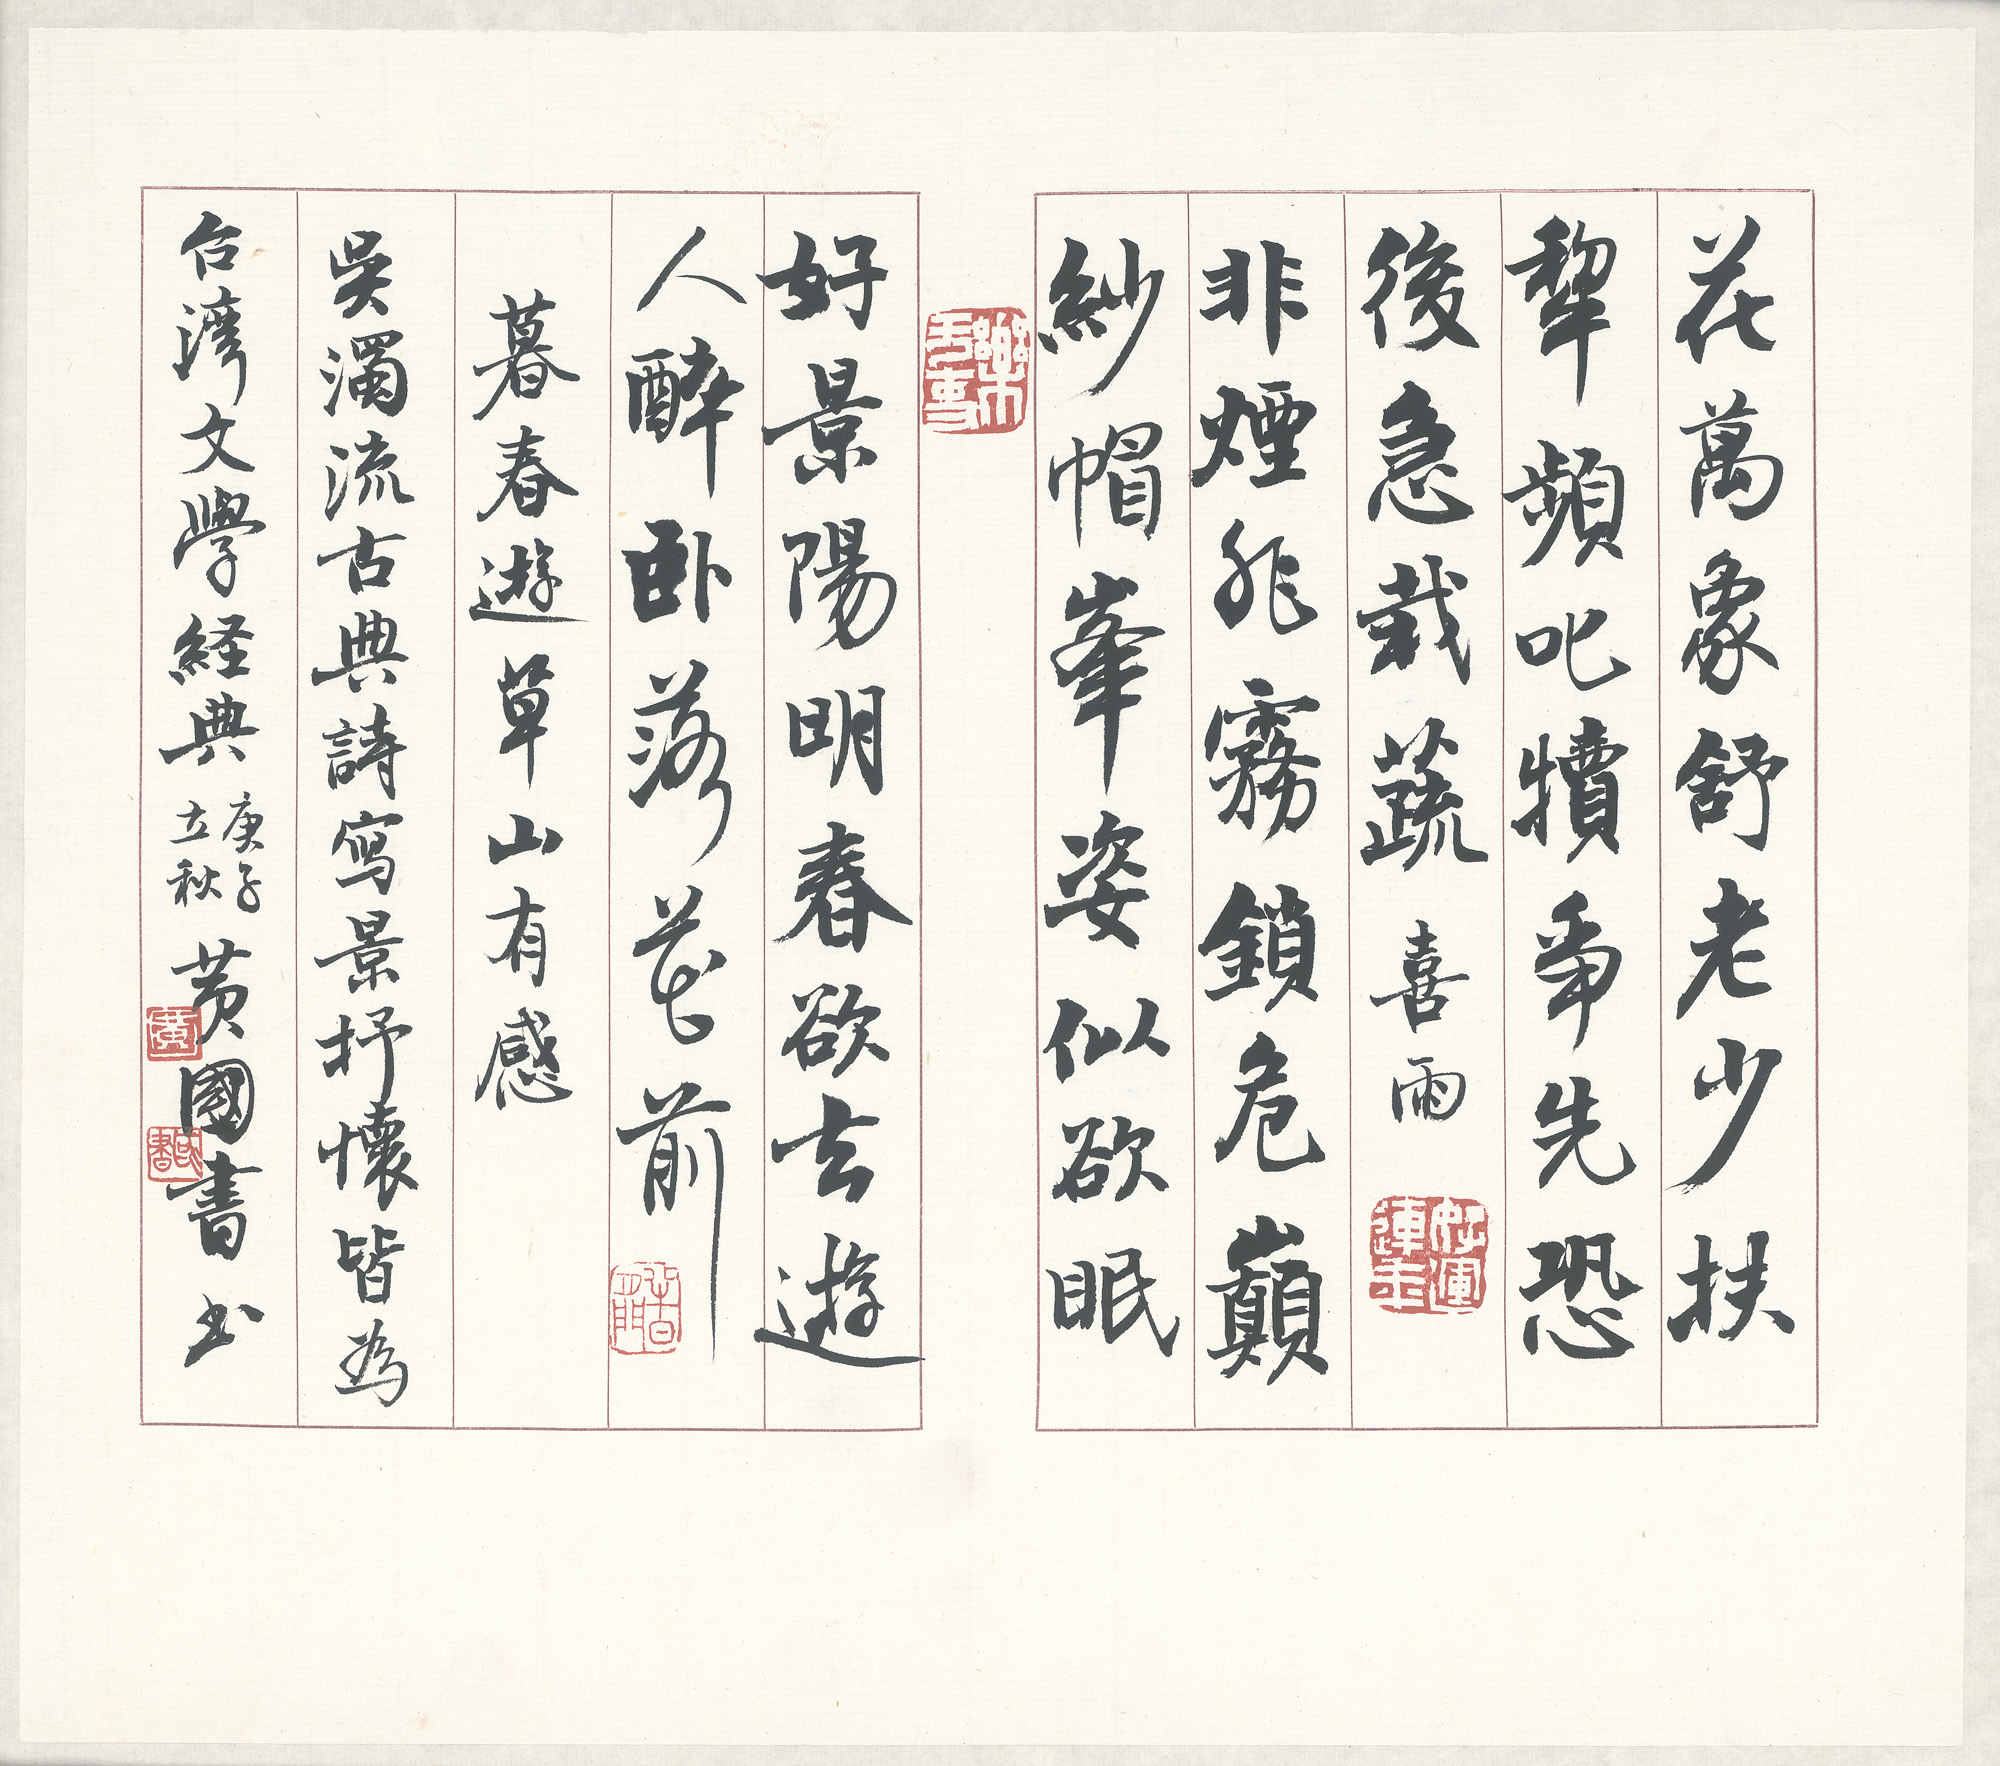 花萬象舒老少扶
犂頻叱犢爭先恐
後急栽蔬 喜雨
非煙非霧鎖危巔
紗帽峯姿似欲眠
好景陽明春欲去遊
人醉卧落花前
暮春遊草山有感
吳濁流古典詩寫景抒懷皆為
台灣文學経典 庚子立秋 黄國書书